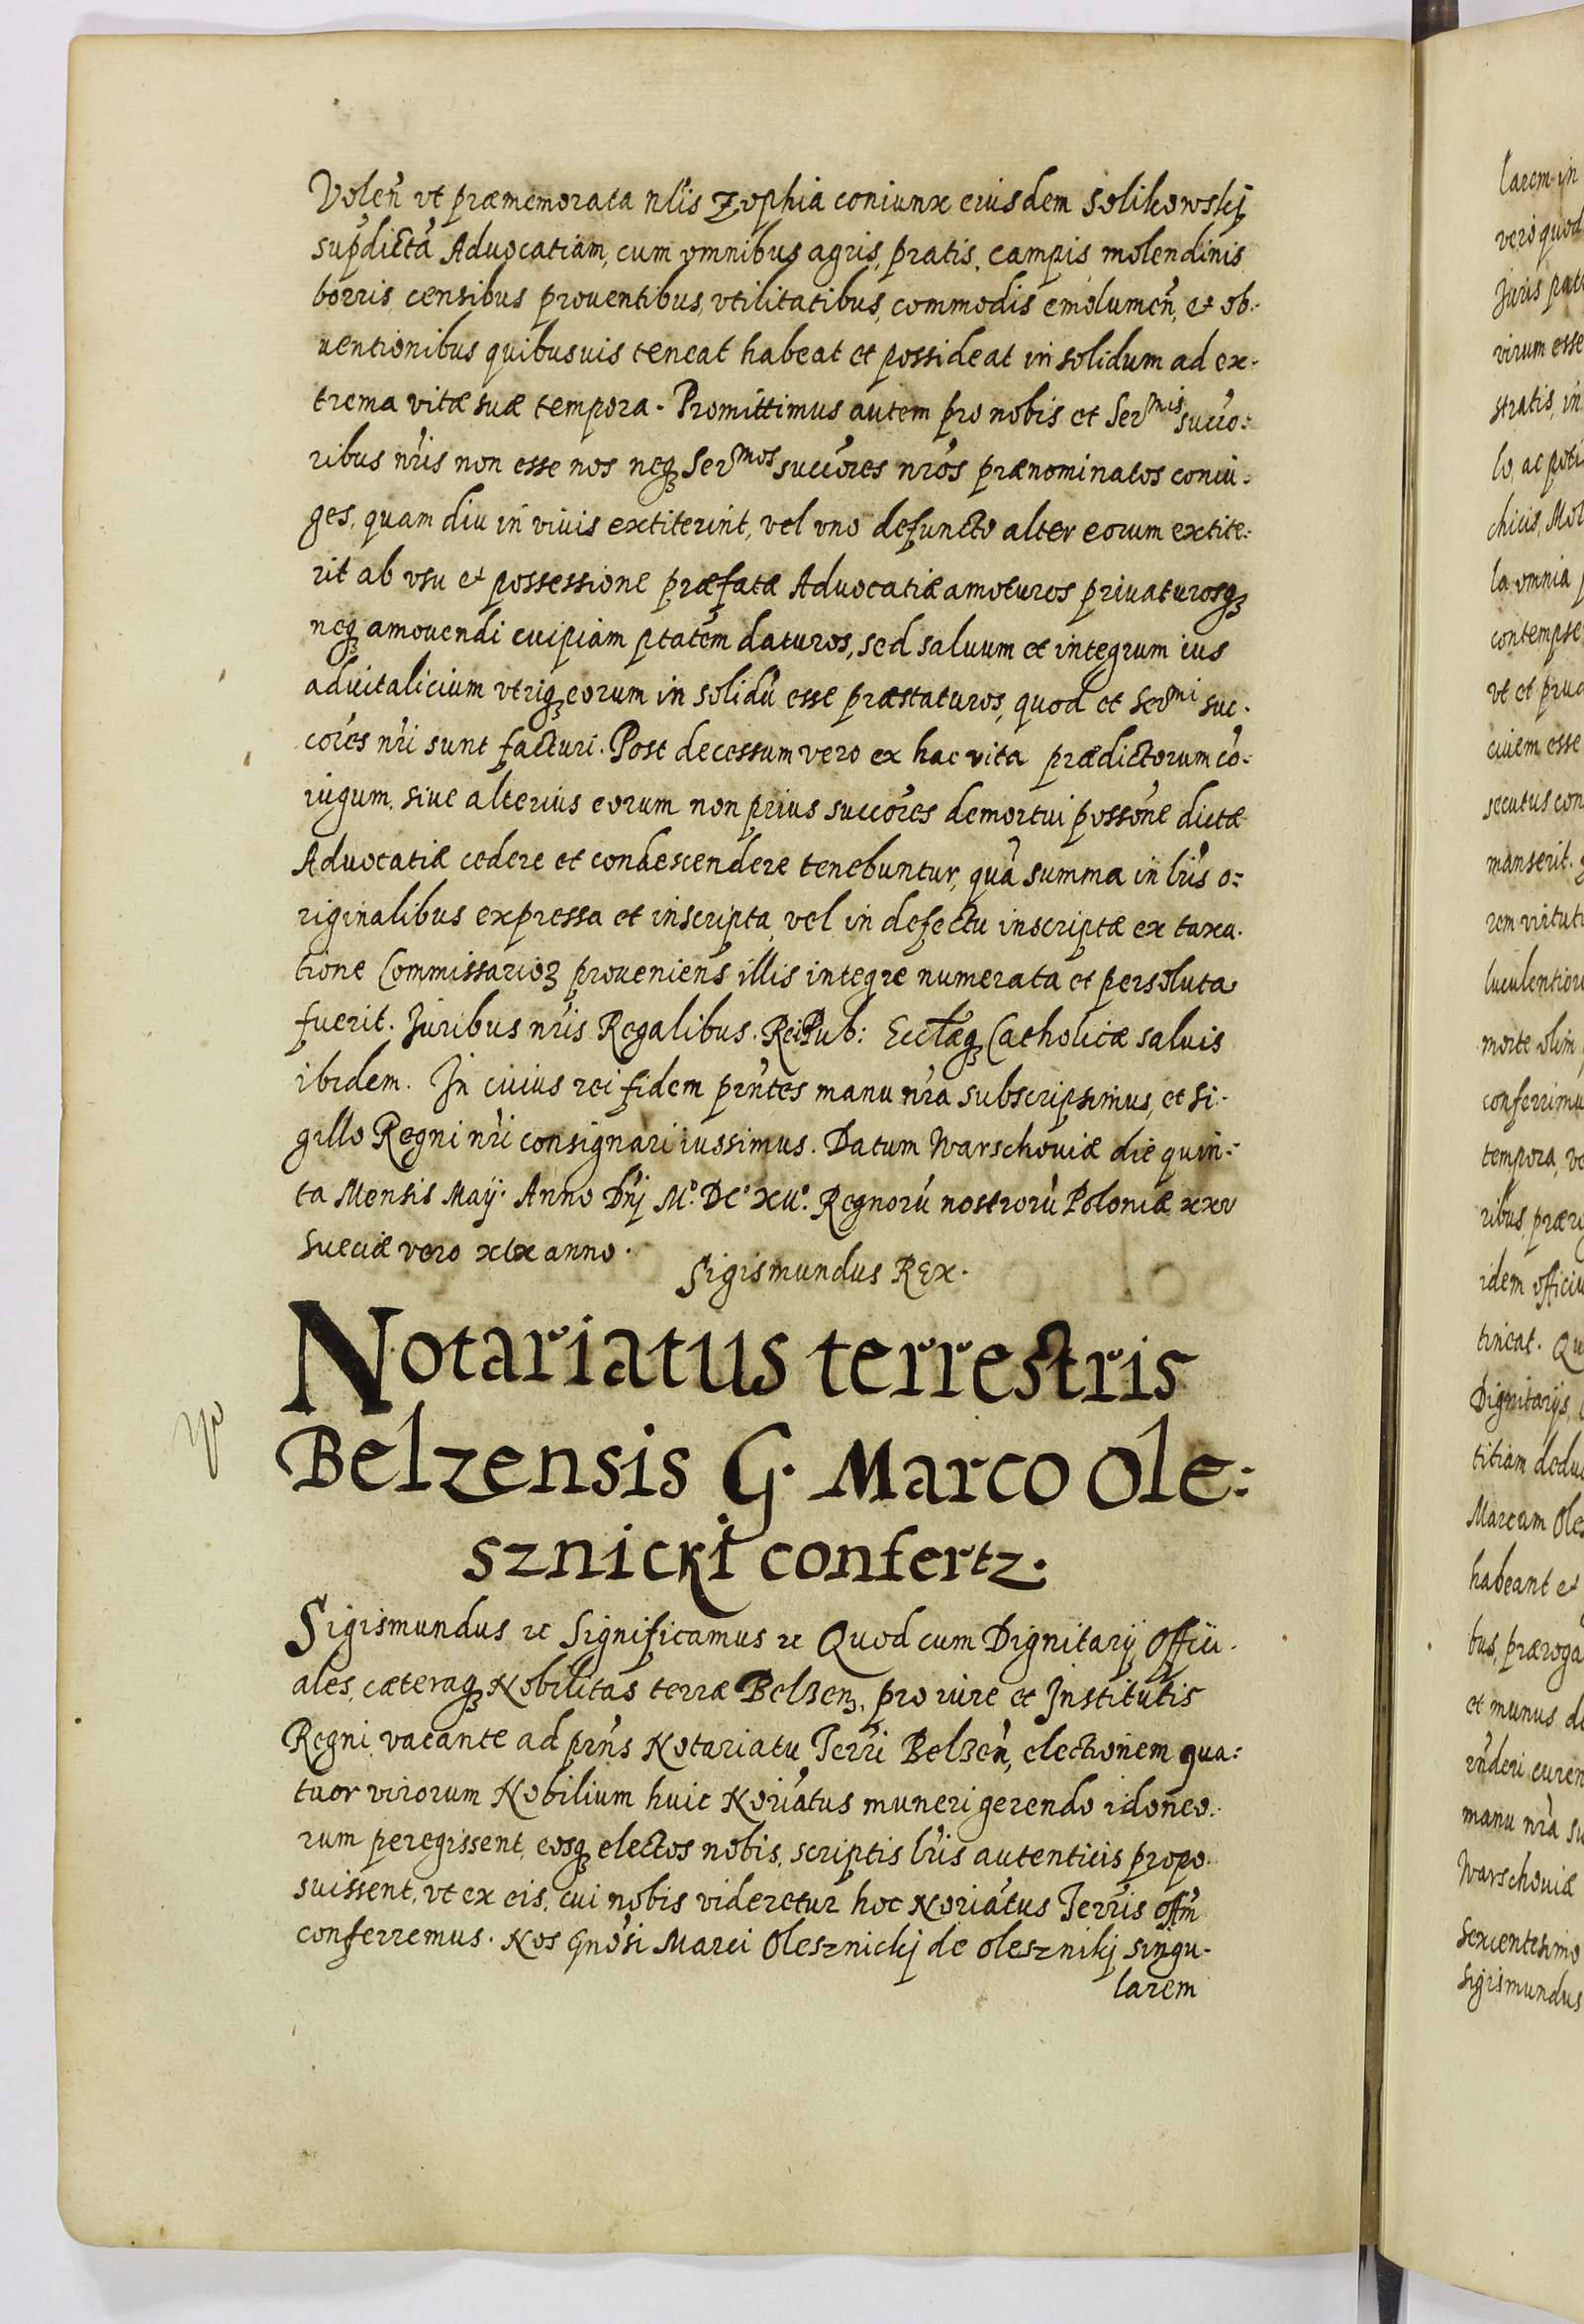 Volen̄ vt præmemorata nl̄is Zophia coniunx eiusdem Solikowskj
sup̄dictā Aduocatiam, cum omnibus agris, pratis, campis, molendinis
borris, censibus prouentibus, vtilitatibus, commodis emolumen̄, et ob-
uentionibus quibusuis teneat habeat et possideat in solidum ad ex-
trema vitæ suæ tempora. Promittimus autem pro nobis et Ser^mis succo=
ribus nr̄is non esse nos neqꝫ Ser^mos succōres nr̄os prænominatos coniu=
ges, quam diu in viuis extiterint, vel vno defuncto alter eorum extite=
rit ab vsu et possessione præfatæ Aduocatiæ amoturos priuaturosqꝫ
neqꝫ amouendi cuipiam ptātem daturos, sed saluum et integrum ius
aduitalicium vtriqꝫ eorum in solidū esse præstaturos, quod et Ser^mi suc-
cōres nr̄i sunt facturi. Post decessum vero ex hac vita prædictorum cō=
iugum, siue alterius eorum non prius succōres demortui possōne dictæ
Aduocatiæ cedere et condescendere tenebuntur, quā summa in lr̄is o=
riginalibus expressa et inscripta, vel in defectu inscriptæ ex taxa-
tione Commissarioꝝ proueniens illis integre numerata et persoluta
fuerit. Juribus nr̄is Regalibus. ReiPub: Eccl̄æqꝫ Catholicæ saluis
ibidem. In cuius rei fidem prn̄tes manu nr̄a subscripsimus, et si-
gillo Regni nr̄i consignari iussimus. Datum Warschouiæ die quin=
ta Mensis Maÿ. Anno Dn̄j M°. DC° XV°. Regnorū nostrorū Poloniæ xxv
Sueciæ vero xlx anno.
Sigismundus Rex.
Notariatus terrestris
Belzensis G. Marco Ole:
sznicki confertz.
Sigismundus ꝛc Significamus ꝛc Quod cum Dignitarÿ, Offici-
ales, cæteraqꝫ Nobilitas terræ Belzenꝫ, pro iure et Institutis
Regni, vacante ad prn̄s Notariatu Terr̄i Belzen̄, electionem qua=
tuor virorum Nobilium huic Noriātus muneri gerendo idoneo-
rum peregissent, eosqꝫ electos nobis, scriptis lr̄is autenticis propo-
suissent, vt ex eis, cui nobis videretur hoc Noriātus Terr̄is offm̄
conferremus. Nos Gnōsi Marci Olesznickj de Olesznikj singu-
larem